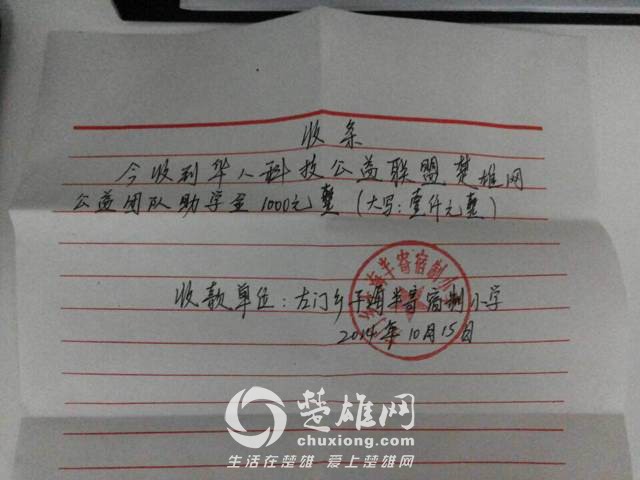 收条
今收到华人科技公益联盟楚雄网
公益团队助学金1000元整（大写：壹仟元整）
半寄宿制
收款单位：左门乡干海半寄宿制小学
2014年10月15日
楚雄网
chuxiong.com
生活在楚雄 爱上楚雄网